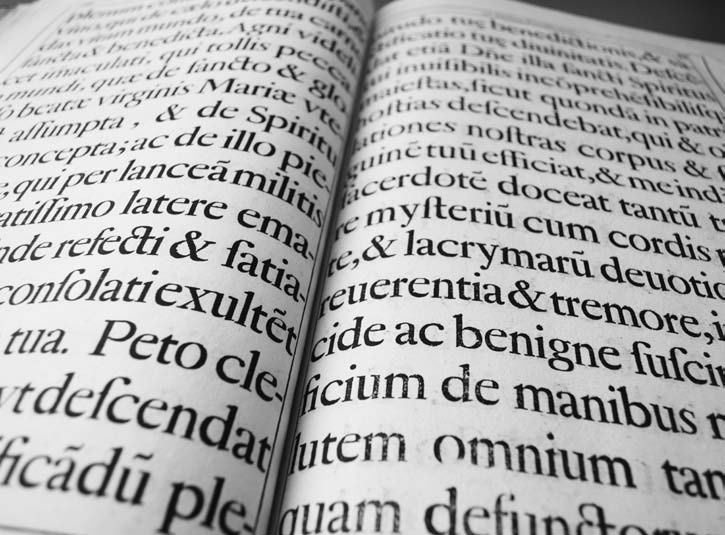 das vitam mundo, de tua carne
sancta & benedicta. Agni videl
cet imaculati, qui tollis pecca
mundi, quæ de ſancto & glo
beatæ virginis Mariæ vte
aſſumpta, & de Spiritu
concepta; ac de illo pie-
, qui per lanceã militis
atiſſimo latere ema-
nde refecti & ſatia-
conſolati exultẽt
tua. Peto cle-
vt deſcendat
ificãdũ ple-
modo tuę benedictionis, &
ificatio tuę diuinitatis. Deſcē
etiã Dñe illa ſancti Spiritus
inuiſibilis incõprehẽſibiliſ
maieſtas, ſicut quondã in patrũ
hoſtias deſcendebat, qui & o
lationes noſtras corpus &
guinẽ tuũ efficiat, & me ind
ſacerdotẽ doceat tantũ t
re myſteriũ cum cordis p
te, & lacrymarũ deuotio
reuerentia & tremore, i
cide ac benigne ſuſcip
ficium de manibus m
lutem omnium tam
quam defunctoru